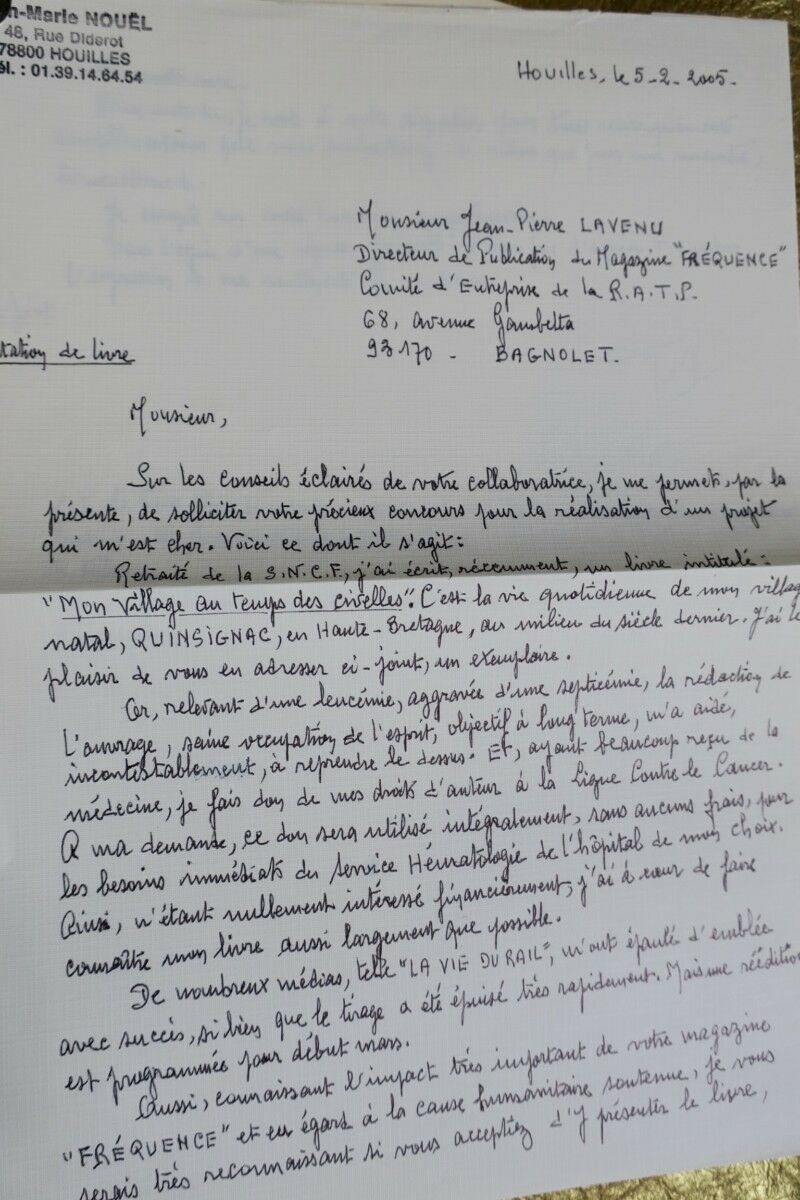 n-Marie NOUËL
48, Rue Diderot
78800 HOUILLES
él. : 01.39.14.64.54
Houilles, le 5-2-2005-
Monsieur Jean-Pierre LAVENU
Directeur de Publication du Magazine "FRÉQUENCE"
Comité d'Entreprise de la R.A.T.P.
68, avenue Gambetta
93170 - BAGNOLET.
tation de livre
Monsieur,
Sur les conseils éclairés de votre collaboratrice, je me permets, par la
présente, de solliciter votre précieux concours pour la réalisation d'un projet
qui m'est cher. Voici ce dont il s'agit :
Retraité de la S.N.C.F., j'ai écrit, récemment, un livre intitulé :
"Mon Village au temps des civelles". C'est la vie quotidienne de mon villag
natal, QUINSIGNAC, en Haute-Bretagne, au milieu du siècle dernier. J'ai le
plaisir de vous en adresser ci-joint, un exemplaire.
Or, relevant d'une leucémie, aggravée d'une septicémie, la rédaction de
L'ouvrage, saine occupation de l'esprit, objectif à long terme, m'a aidé,
incontestablement, à reprendre le dessus. Et, ayant beaucoup reçu de la
médecine, je fais don de mes droits d'auteur à la Ligue Contre le Cancer.
A ma demande, ce don sera utilisé intégralement, sans aucuns frais, pour
les besoins immédiats du Service Hématologie de l'hôpital de mon choix.
Ainsi, n'étant nullement intéressé financièrement, j'ai à cœur de faire
connaître mon livre aussi largement que possible.
De nombreux médias, telle "LA VIE DU RAIL", m'ont épaulé d'emblée
avec succès, si bien que le tirage a été épuisé très rapidement. Mais une réédition
est programmée pour début mars.
Aussi, connaissant l'impact très important de votre magazine
"FRÉQUENCE" et eu égard à la cause humanitaire soutenue, je vous
serais très reconnaissant si vous acceptiez d'y présenter le livre,